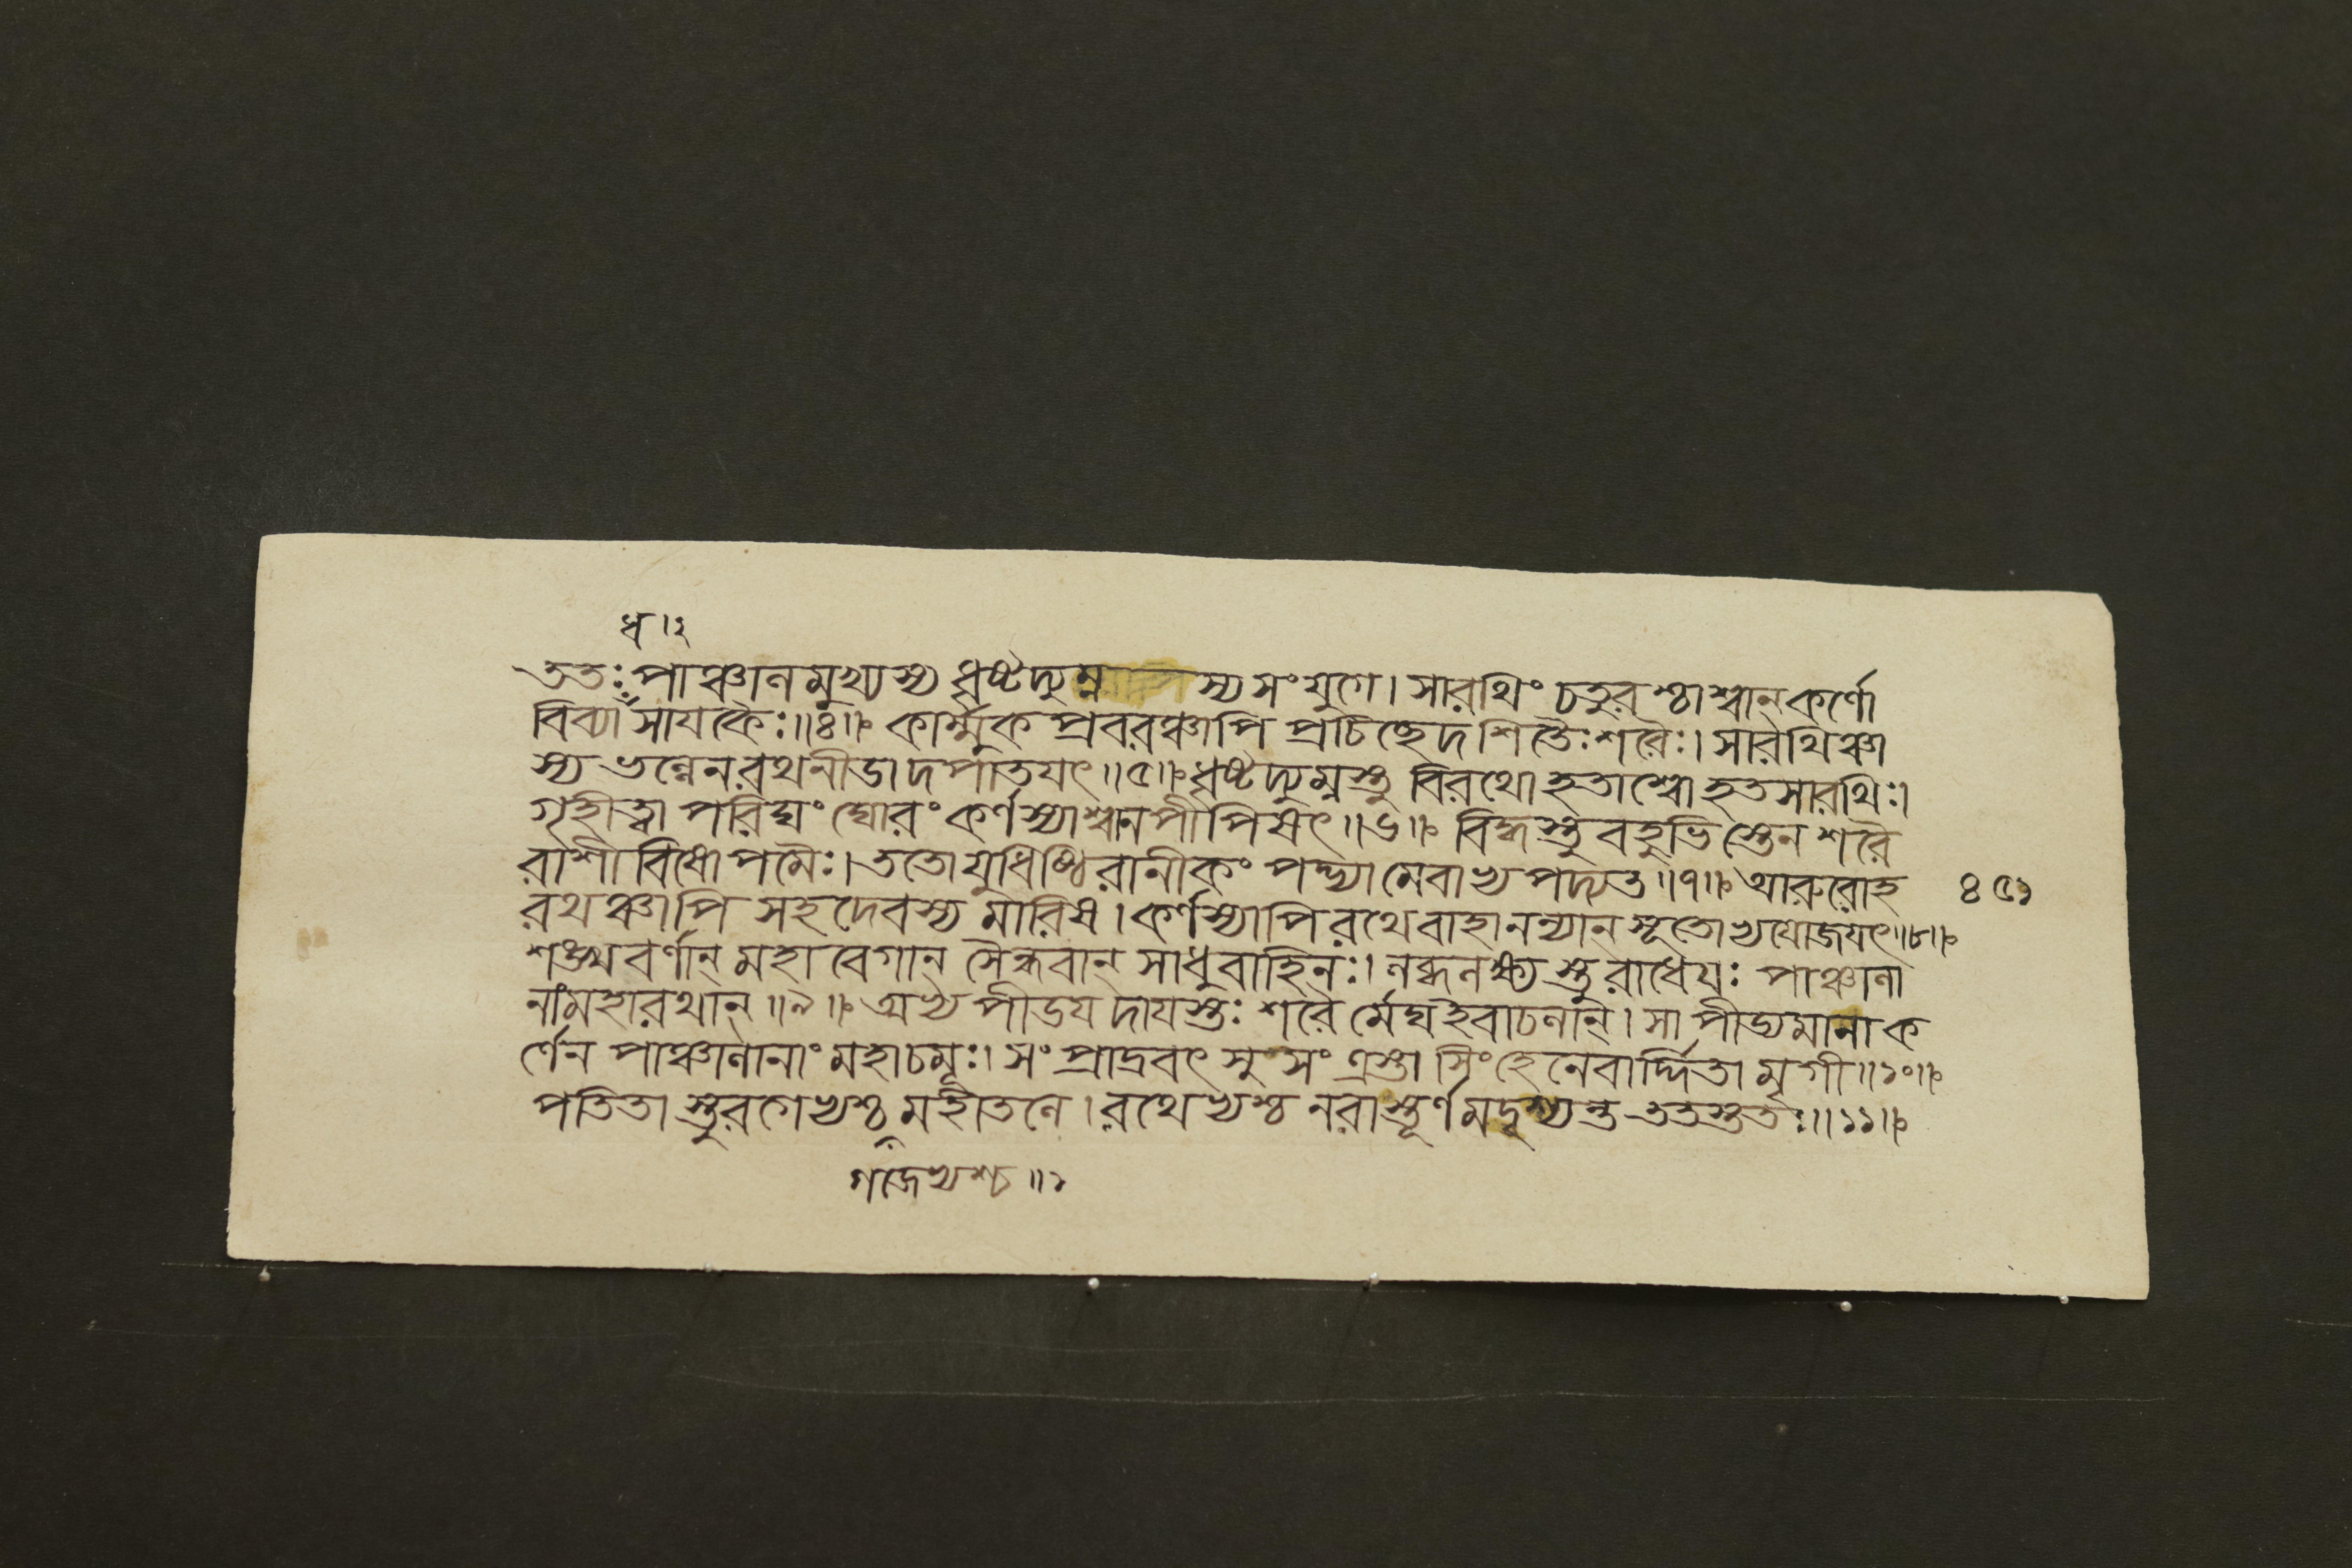 ধ ৷২
ততঃ পাঞ্চালমুখ্যস্য ধৃষ্টদ্যুম্নস্য সংযুগে। সারথিং চতুরশ্চাশ্বান্ কর্ণো
বিব্যা সায়কৈঃ॥৪॥ কার্ম্মুকপ্রবরঞ্চাপি প্রচিচ্ছেদ শিতৈঃ শরৈঃ। সারথিঞ্চা
স্য ভল্লেন রথনীডাদপাতযৎ॥৫॥ ধৃষ্টদ্যুম্নস্তু বিরথো হতাশ্বো হতসারথিঃ।
গৃহীত্বা পরিঘং ঘোরং কর্ণস্যাশ্বানপীপিষৎ॥৬॥ বিদ্ধস্তু বহুভিস্তেন শরৈ
রাশীবিষোপমৈঃ। ততো যুধিষ্ঠিরানীকং পদ্ভ্যামেবাভ্যপদ্যত॥৭॥ আরুরোহ
রথঞ্চাপি সহদেবস্য মারিষ। কর্ণস্যাপি রথে বাহানন্যান্ সূতোভ্যযোজযৎ॥৮॥
৪৫১
শঙ্খবর্ণান্ মহাবেগান্ সৈন্ধবান্ সাধুবাহিনঃ। লব্ধলক্ষ্যস্তু রাধেযঃ পাঞ্চালা
নাং মহারথান্॥৯॥ অভ্যপীডযদাযস্তঃ শরৈর্মেঘ ইবাচলান্। সা পীড্যমানা ক
র্ণেন পাঞ্চালানাং মহাচমূঃ। সংপ্রাদ্রবৎ সুসংত্রস্তা সিংহেনেবার্দ্দিতা মৃগী॥১০॥
পতিতাস্তুরগেভ্যশ্চ মহীতলে। রথেভ্যশ্চ নরাস্তূর্ণমদৃশ্যন্ত ততস্ততঃ॥১১॥
গজেভ্যশ্চ॥১